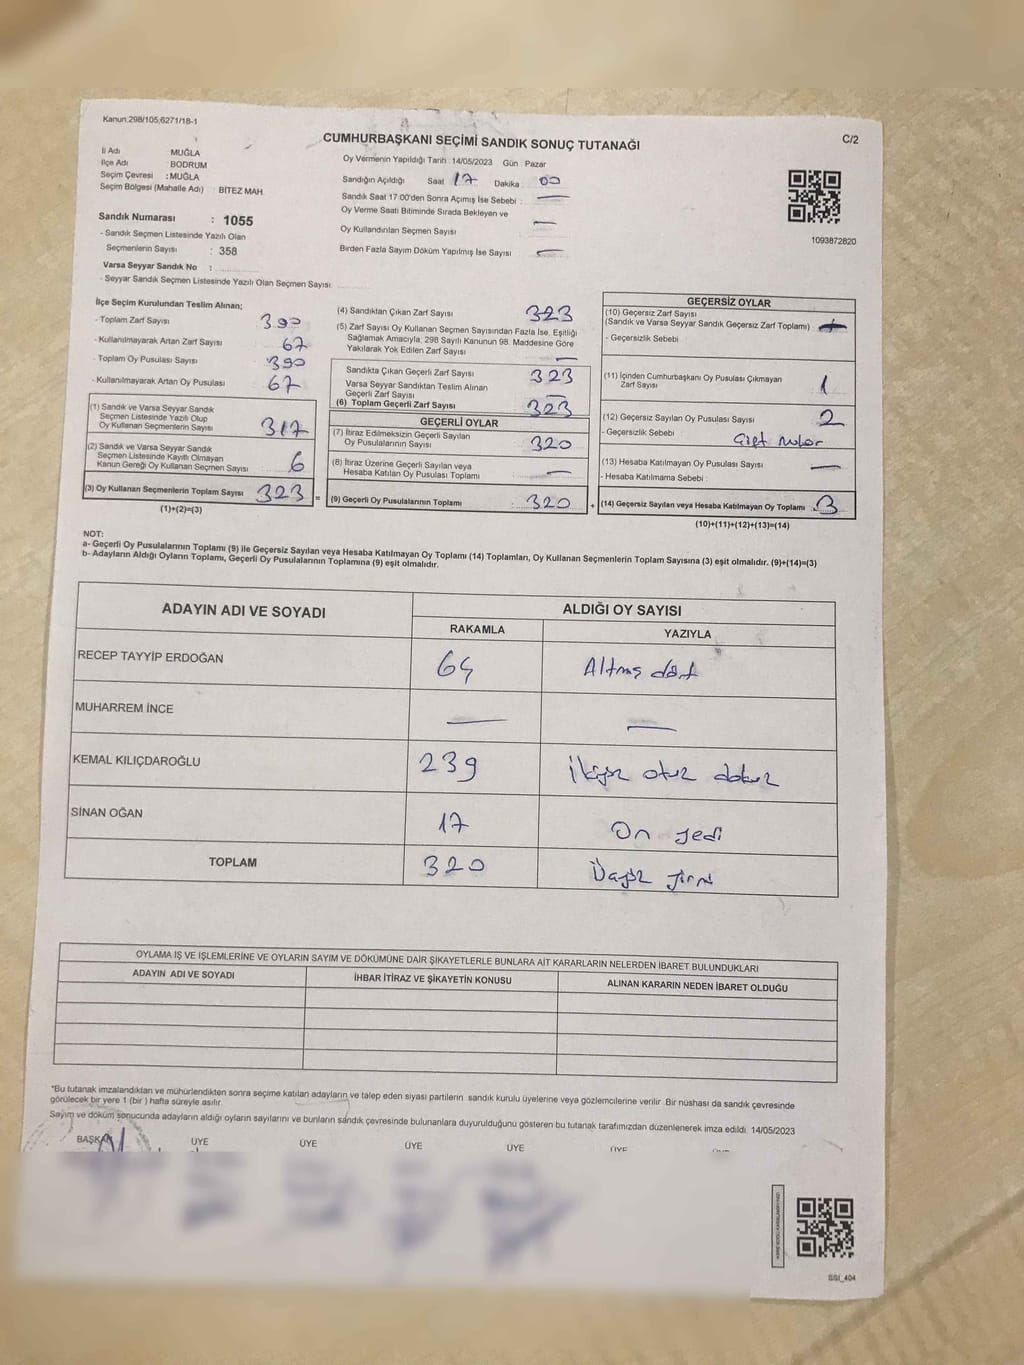 Kanun:298/105,6271/18-1
C/2
CUMHURBAŞKANI SEÇİMİ SANDIK SONUÇ TUTANAĞI
İl Adı MUĞLA
İlçe Adı BODRUM
Seçim Çevresi : MUĞLA
Seçim Bölgesi (Mahalle Adı) : BİTEZ MAH.
Oy Vermenin Yapıldığı Tarih :14/05/2023 Gün : Pazar
Sandığın Açıldığı Saat 17 Dakika : 00
Sandık Saat 17:00'den Sonra Açılmış İse Sebebi : —
Oy Verme Saati Bitiminde Sırada Bekleyen ve
Oy Kullandırılan Seçmen Sayısı —
Birden Fazla Sayım Döküm Yapılmış İse Sayısı —
1093872820
Sandık Numarası : 1055
- Sandık Seçmen Listesinde Yazılı Olan
Seçmenlerin Sayısı : 358
Varsa Seyyar Sandık No :
- Seyyar Sandık Seçmen Listesinde Yazılı Olan Seçmen Sayısı:
İlçe Seçim Kurulundan Teslim Alınan;
- Toplam Zarf Sayısı 390
- Kullanılmayarak Artan Zarf Sayısı 67
- Toplam Oy Pusulası Sayısı 390
- Kullanılmayarak Artan Oy Pusulası 67
(1) Sandık ve Varsa Seyyar Sandık
Seçmen Listesinde Yazılı Olup
Oy Kullanan Seçmenlerin Sayısı 317
(2) Sandık ve Varsa Seyyar Sandık
Seçmen Listesinde Kayıtlı Olmayan
Kanun Gereği Oy Kullanan Seçmen Sayısı 6
(3) Oy Kullanan Seçmenlerin Toplam Sayısı 323 =
(1)+(2)=(3)
(4) Sandıktan Çıkan Zarf Sayısı 323
(5) Zarf Sayısı Oy Kullanan Seçmen Sayısından Fazla İse, Eşitliği
Sağlamak Amacıyla, 298 Sayılı Kanunun 98. Maddesine Göre
Yakılarak Yok Edilen Zarf Sayısı —
Sandıkta Çıkan Geçerli Zarf Sayısı 323
Varsa Seyyar Sandıktan Teslim Alınan
Geçerli Zarf Sayısı —
(6) Toplam Geçerli Zarf Sayısı 323
GEÇERLİ OYLAR
(7) İtiraz Edilmeksizin Geçerli Sayılan
Oy Pusulalarının Sayısı 320
(8) İtiraz Üzerine Geçerli Sayılan veya
Hesaba Katılan Oy Pusulası Toplamı —
(9) Geçerli Oy Pusulalarının Toplamı : 320 +
GEÇERSİZ OYLAR
(10) Geçersiz Zarf Sayısı
(Sandık ve Varsa Seyyar Sandık Geçersiz Zarf Toplamı) —
- Geçersizlik Sebebi
(11) İçinden Cumhurbaşkanı Oy Pusulası Çıkmayan
Zarf Sayısı 1
(12) Geçersiz Sayılan Oy Pusulası Sayısı 2
- Geçersizlik Sebebi :
(13) Hesaba Katılmayan Oy Pusulası Sayısı —
- Hesaba Katılmama Sebebi :
(14) Geçersiz Sayılan veya Hesaba Katılmayan Oy Toplamı 3
(10)+(11)+(12)+(13)=(14)
NOT:
a- Geçerli Oy Pusulalarının Toplamı (9) ile Geçersiz Sayılan veya Hesaba Katılmayan Oy Toplamı (14) Toplamları, Oy Kullanan Seçmenlerin Toplam Sayısına (3) eşit olmalıdır. (9)+(14)=(3)
b- Adayların Aldığı Oyların Toplamı, Geçerli Oy Pusulalarının Toplamına (9) eşit olmalıdır.
ADAYIN ADI VE SOYADI ALDIĞI OY SAYISI
RAKAMLA YAZIYLA
RECEP TAYYİP ERDOĞAN 64 Altmış dört
MUHARREM İNCE — —
KEMAL KILIÇDAROĞLU 239 İkiyüz otuz dokuz
SİNAN OĞAN 17 On yedi
TOPLAM 320 Üçyüz yirmi
OYLAMA İŞ VE İŞLEMLERİNE VE OYLARIN SAYIM VE DÖKÜMÜNE DAİR ŞİKAYETLERLE BUNLARA AİT KARARLARIN NELERDEN İBARET BULUNDUKLARI
ADAYIN ADI VE SOYADI İHBAR İTİRAZ VE ŞİKAYETİN KONUSU ALINAN KARARIN NEDEN İBARET OLDUĞU
*Bu tutanak imzalandıktan ve mühürlendikten sonra seçime katılan adayların ve talep eden siyasi partilerin sandık kurulu üyelerine veya gözlemcilerine verilir. Bir nüshası da sandık çevresinde
görülecek bir yere 1 (bir ) hafta süreyle asılır.
Sayım ve döküm sonucunda adayların aldığı oyların sayılarını ve bunların sandık çevresinde bulunanlara duyurulduğunu gösteren bu tutanak tarafımızdan düzenlenerek imza edildi. 14/05/2023
BAŞKAN ÜYE ÜYE ÜYE ÜYE ÜYE
SSI_404